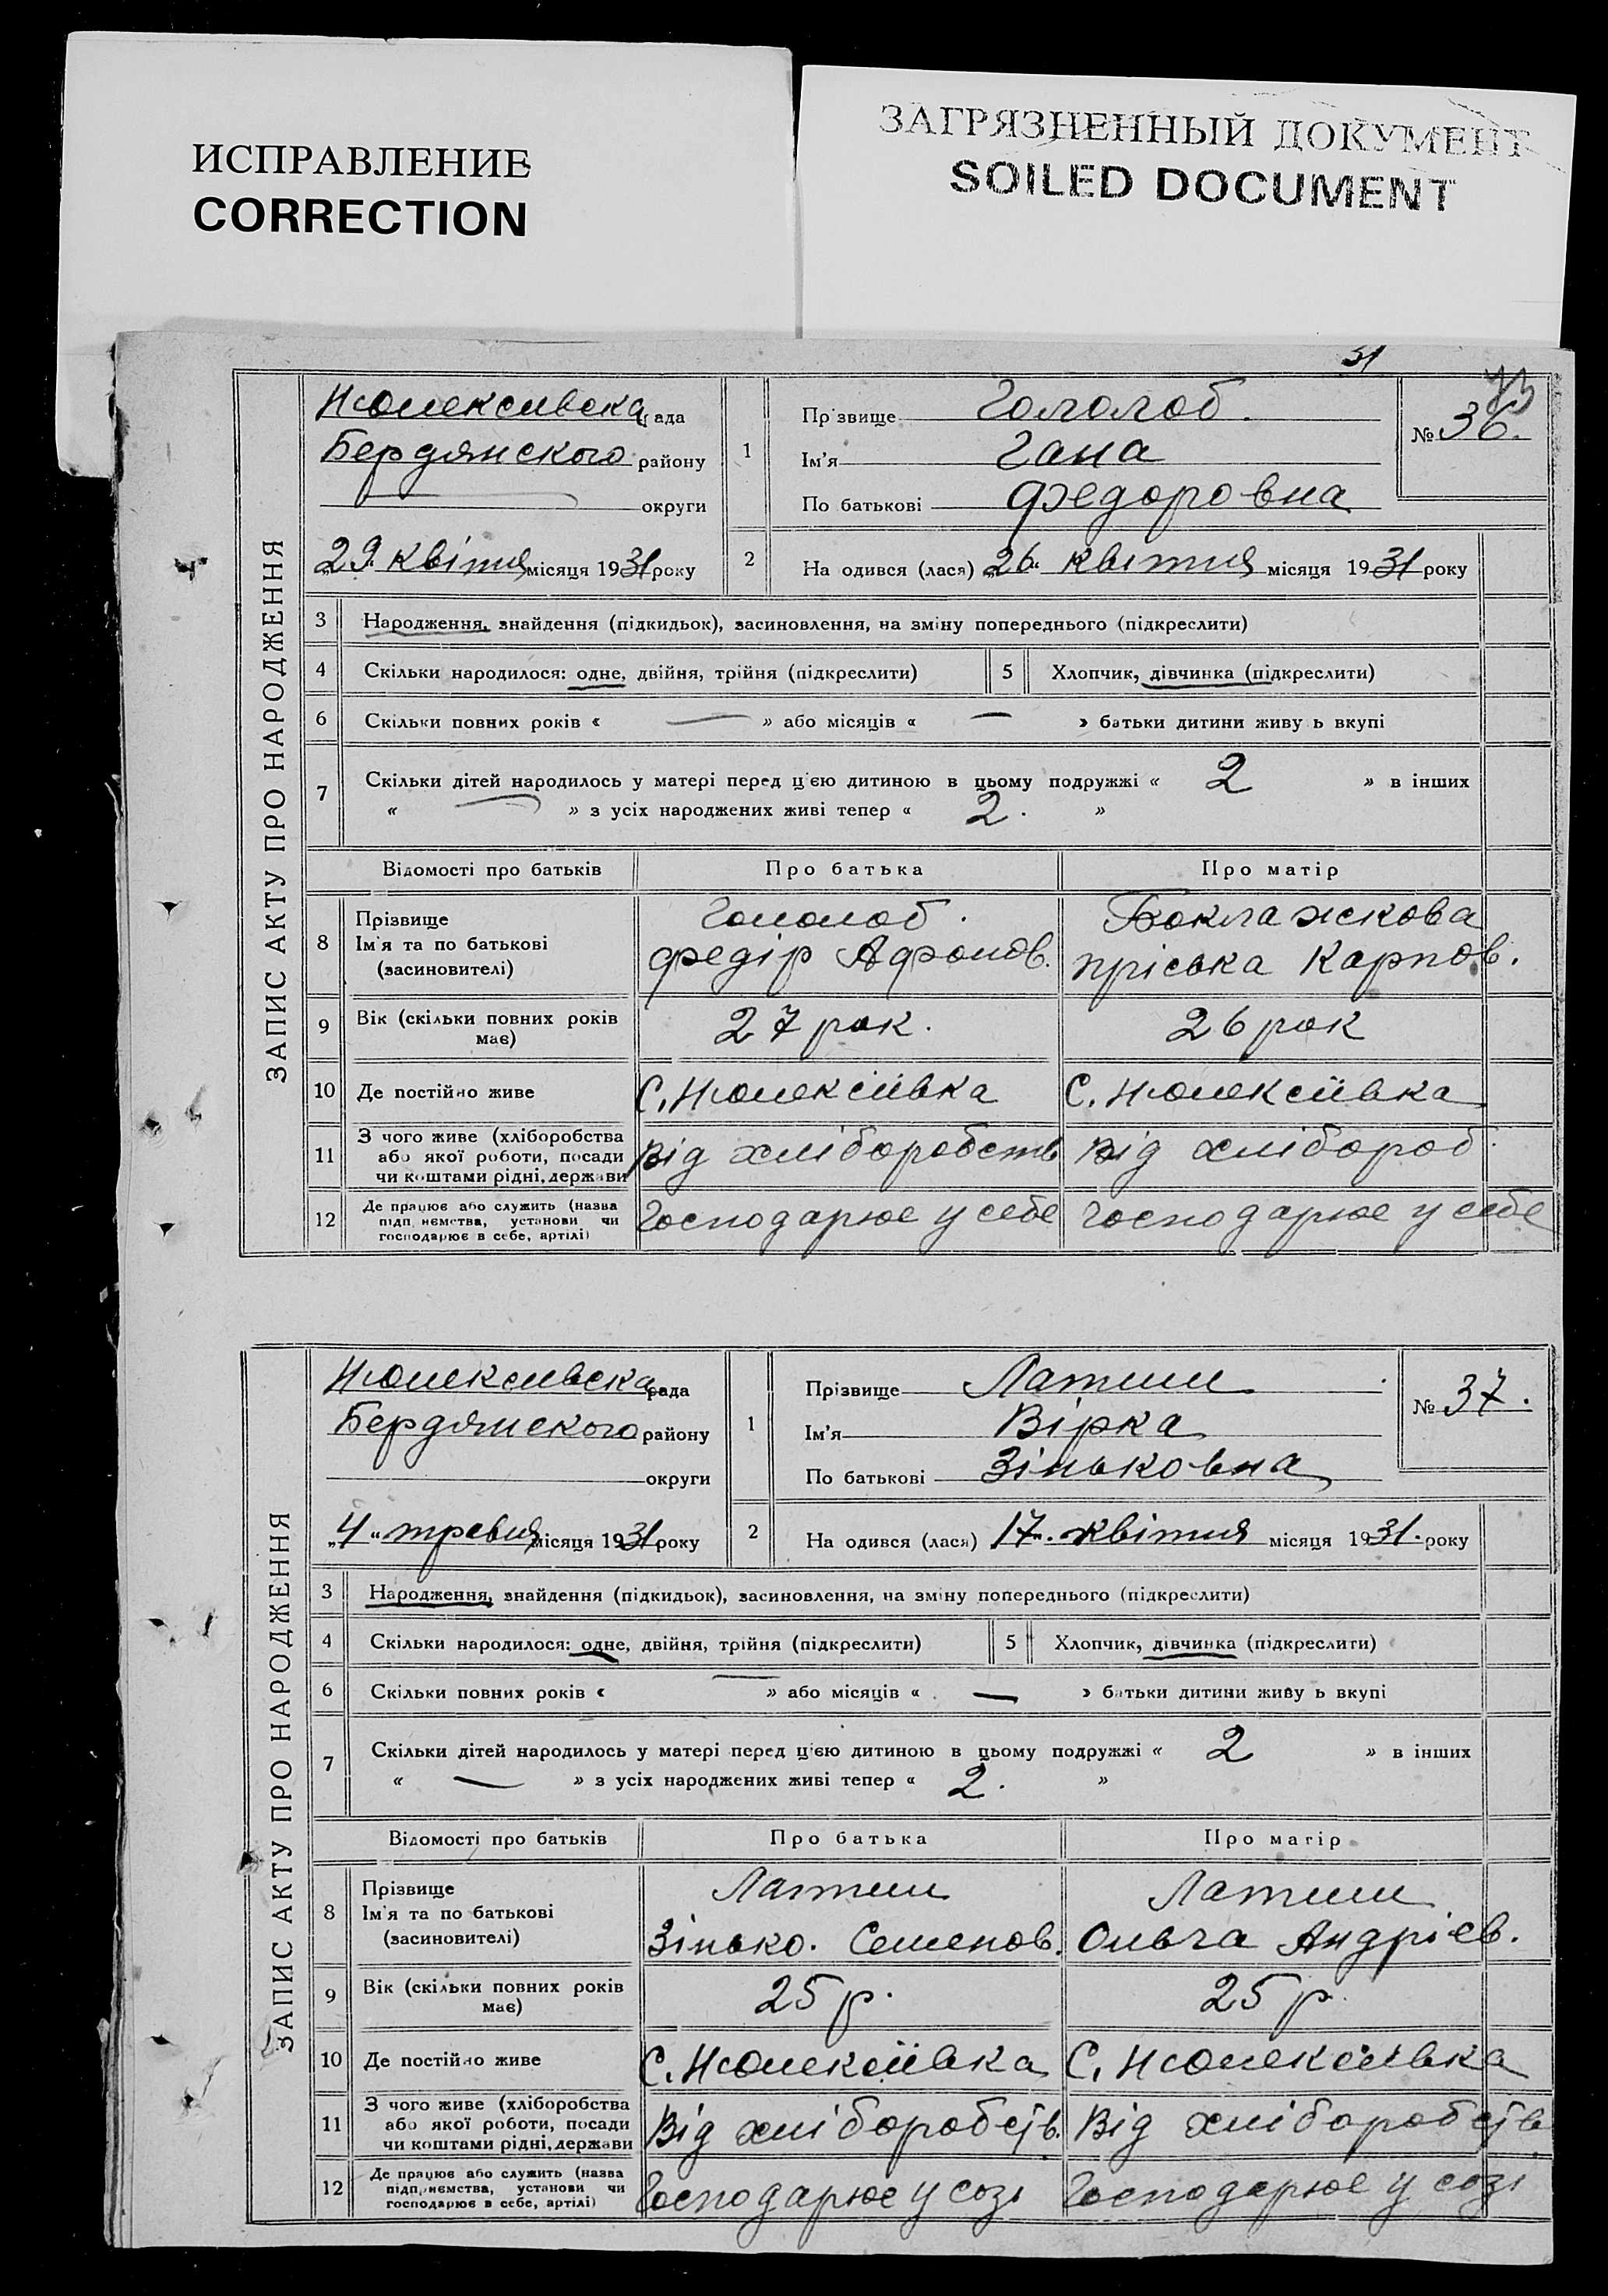 ИСПРАВЛЕНИЕ
CORRECTION
ЗАГРЯЗНЕННЫЙ ДОКУМЕНТ
SOILED DOCUMENT
31
ЗАПИС АКТУ ПРО НАРОДЖЕННЯ
рада
Бердянского району
округи
29 квітня місяця 1931 року
1
Прізвище Гололоб.
Ім'я Гана
По батькові Федоровна
№ 36.
2
На одився (лася) 26 квітня місяця 1931 року
3 Народження, знайдення (підкидьок), засиновлення, на зміну попереднього (підкреслити)
4 Скільки народилося: одне, двійня, трійня (підкреслити) 5 Хлопчик, дівчинка (підкреслити)
6 Скільки повних років « — » або місяців « — » батьки дитини живу ь вкупі
7 Скільки дітей народилось у матері перед цією дитиною в цьому подружжі « 2 » в інших
« — » з усіх народжених живі тепер « 2. »
Відомості про батьків Про батька Про матір
8 Прізвище Гололоб. Боклажскова
Ім'я та по батькові Федір Афонов. Пріська Карпов.
(засиновителі)
9 Вік (скільки повних років має) 27 рок. 26 рок
10 Де постійно живе С. Н.Олексіївка С. Н.Олексіївка
11 З чого живе (хліборобства
або якої роботи, посади
чи коштами рідні, держави Від хліборобств Від хлібороб.
12 Де працює або служить (назва
підп иємства, установи чи
господарює в себе, артілі) Господарює у себе Господарює у себе
ЗАПИС АКТУ ПРО НАРОДЖЕННЯ
рада
Бердянского району
округи
„4“ травня місяця 1931 року
1
Прізвище Латиш
Ім'я Вірка
По батькові Зіньковна
№ 37.
2
На одився (лася) 17. квітня місяця 1931. року
3 Народження, знайдення (підкидьок), засиновлення, на зміну попереднього (підкреслити)
4 Скільки народилося: одне, двійня, трійня (підкреслити) 5 Хлопчик, дівчинка (підкреслити)
6 Скільки повних років « — » або місяців « — » батьки дитини живу ь вкупі
7 Скільки дітей народилось у матері перед цією дитиною в цьому подружжі « 2 » в інших
« — » з усіх народжених живі тепер « 2. »
Відомості про батьків Про батька Про матір
8 Прізвище Латиш Латиш
Ім'я та по батькові Зінько. Семенов. Ольга Андрієв.
(засиновителі)
9 Вік (скільки повних років має) 25 р. 25 р.
10 Де постійно живе С. Н.Олексіївка С. Н.Олексіївка
11 З чого живе (хліборобства
або якої роботи, посади
чи коштами рідні, держави Від хліборобств. Від хліборобств
12 Де працює або служить (назва
підп иємства, установи чи
господарює в себе, артілі) Господарює у созі Господарює у созі